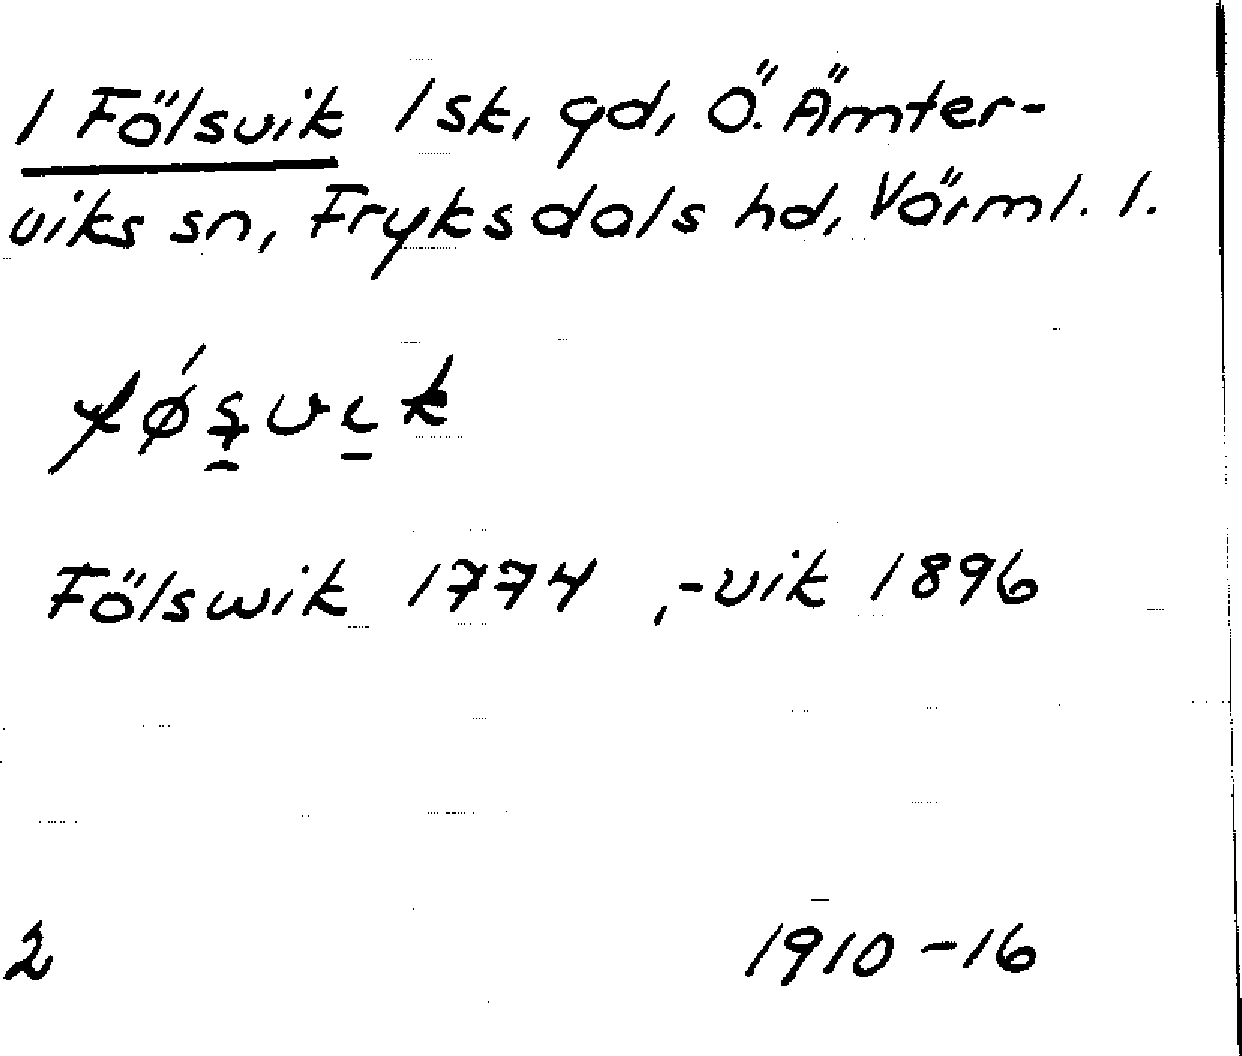 1 Fölsvik 1 sk, gd, Ö. Ämter-
viks sn, Fryksdals hd, Värml. l.
fǿṣvık
Fölswik 1774 , -vik 1896
2 1910-16